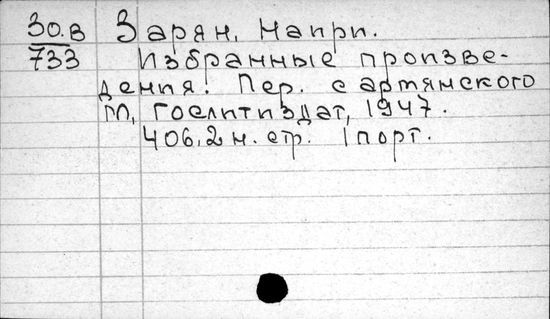 30.В Зарян, Наири.
733 Избранные произве-
дения. Пер. с армянского
М, Гослитиздат, 1947.
406, 2 н. стр. 1 порт.